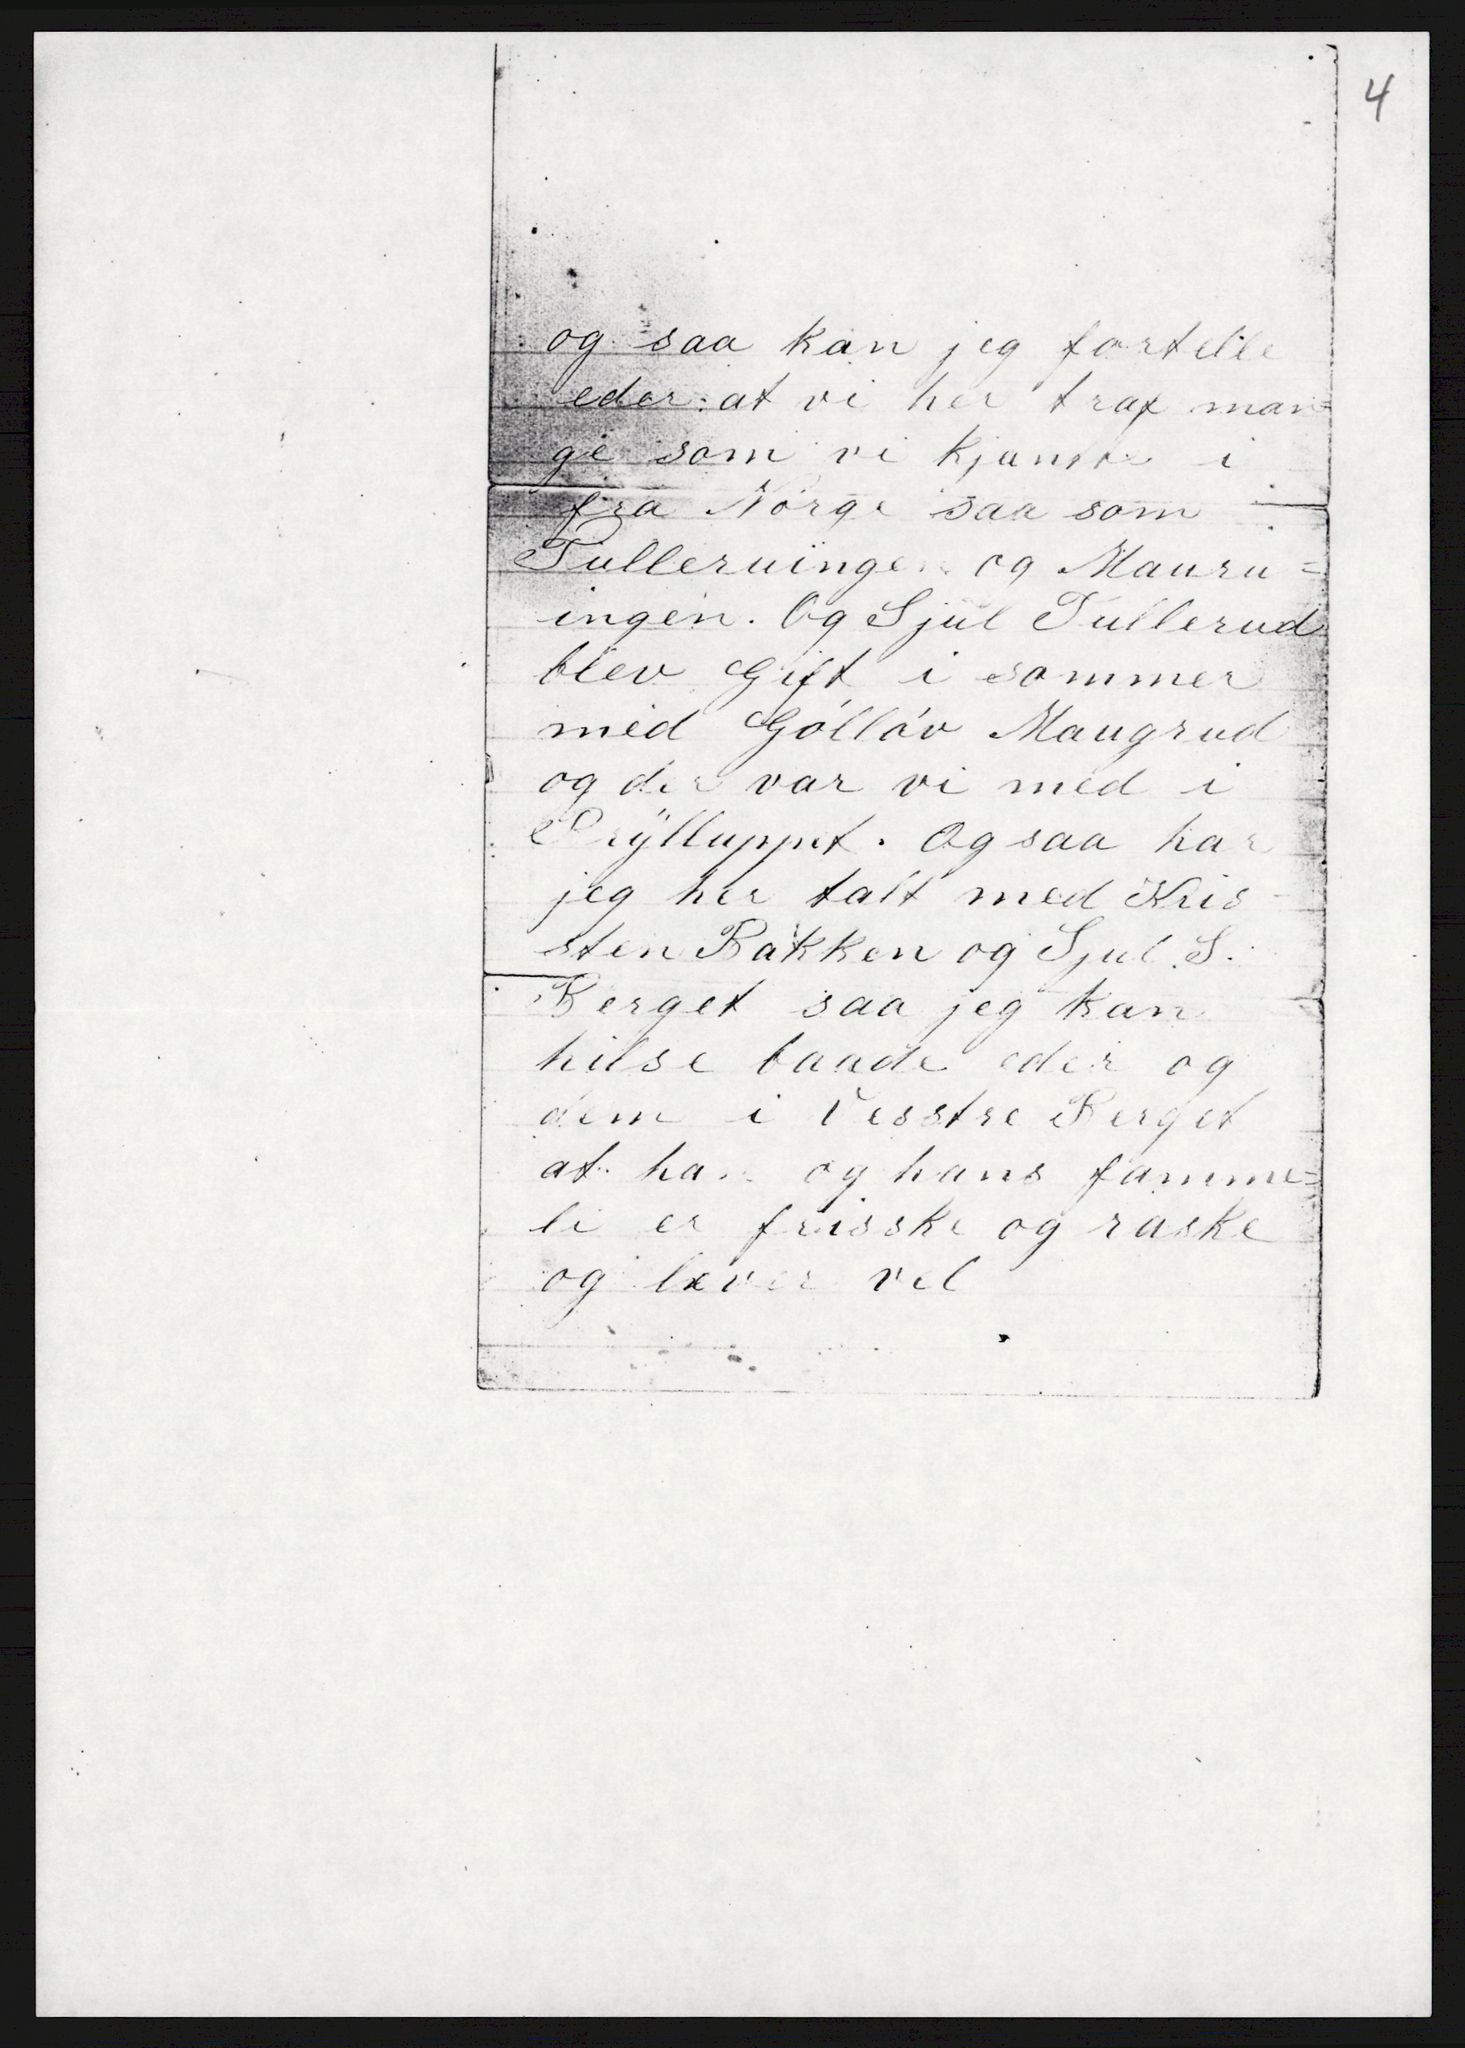 4
og saa kan jeg fortelle
eder at vi her traf man=
ge som vi kjener i
fra Norge saa som
Tulleruingen og Mauru=
ingen. Og Sjul Tullerud
blev Gift i sommer
med Gólláv Maugrud
og der var vi med i
Brylluppet. Og saa har
jeg her talt med Kris-
sten Bakken og Sjul. S.
Berget saa jeg kan
hilse baade eder og
dem i Vesstre Berget
at han og hans famme=
li er frisske og raske
og lever vel